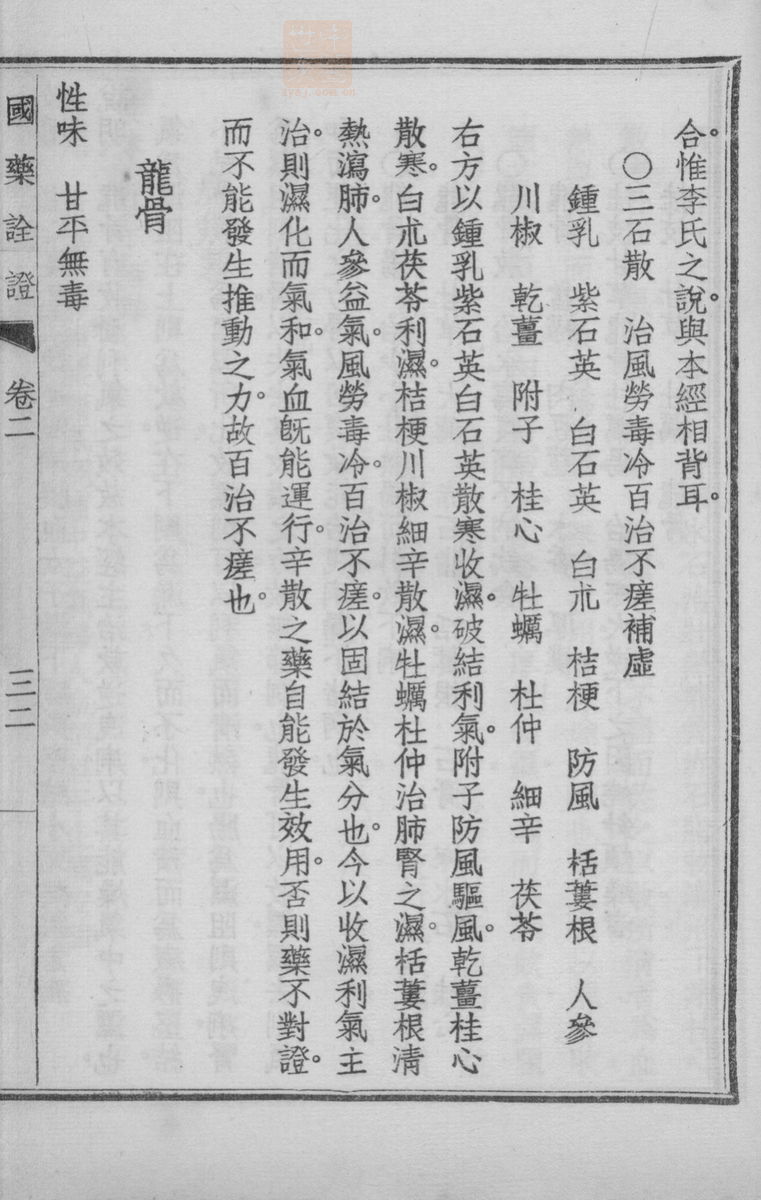 合惟李氏之說。與本經相背耳。
〇三石散　治風勞毒冷百治不瘥補虛
鍾乳　紫石英　白石英　白朮　桔梗　防風　栝蔞根　人參
川椒　乾薑　附子　桂心　牡蠣　杜仲　細辛　茯苓
右方以鍾乳紫石英白石英散寒收濕。破結利氣。附子防風驅風。乾薑桂心
散寒。白朮茯苓利濕。桔梗川椒細辛散濕。牡蠣杜仲治肺腎之濕。栝蔞根清
熱瀉肺。人參益氣。風勞毒冷。百治不瘥。以固結於氣分也。今以收濕利氣主
治。則濕化而氣和。氣血既能運行。辛散之藥自能發生效用。否則藥不對證。
而不能發生推動之力。故百治不瘥也。
龍骨
性味　甘平無毒
國藥詮證　卷二　三二